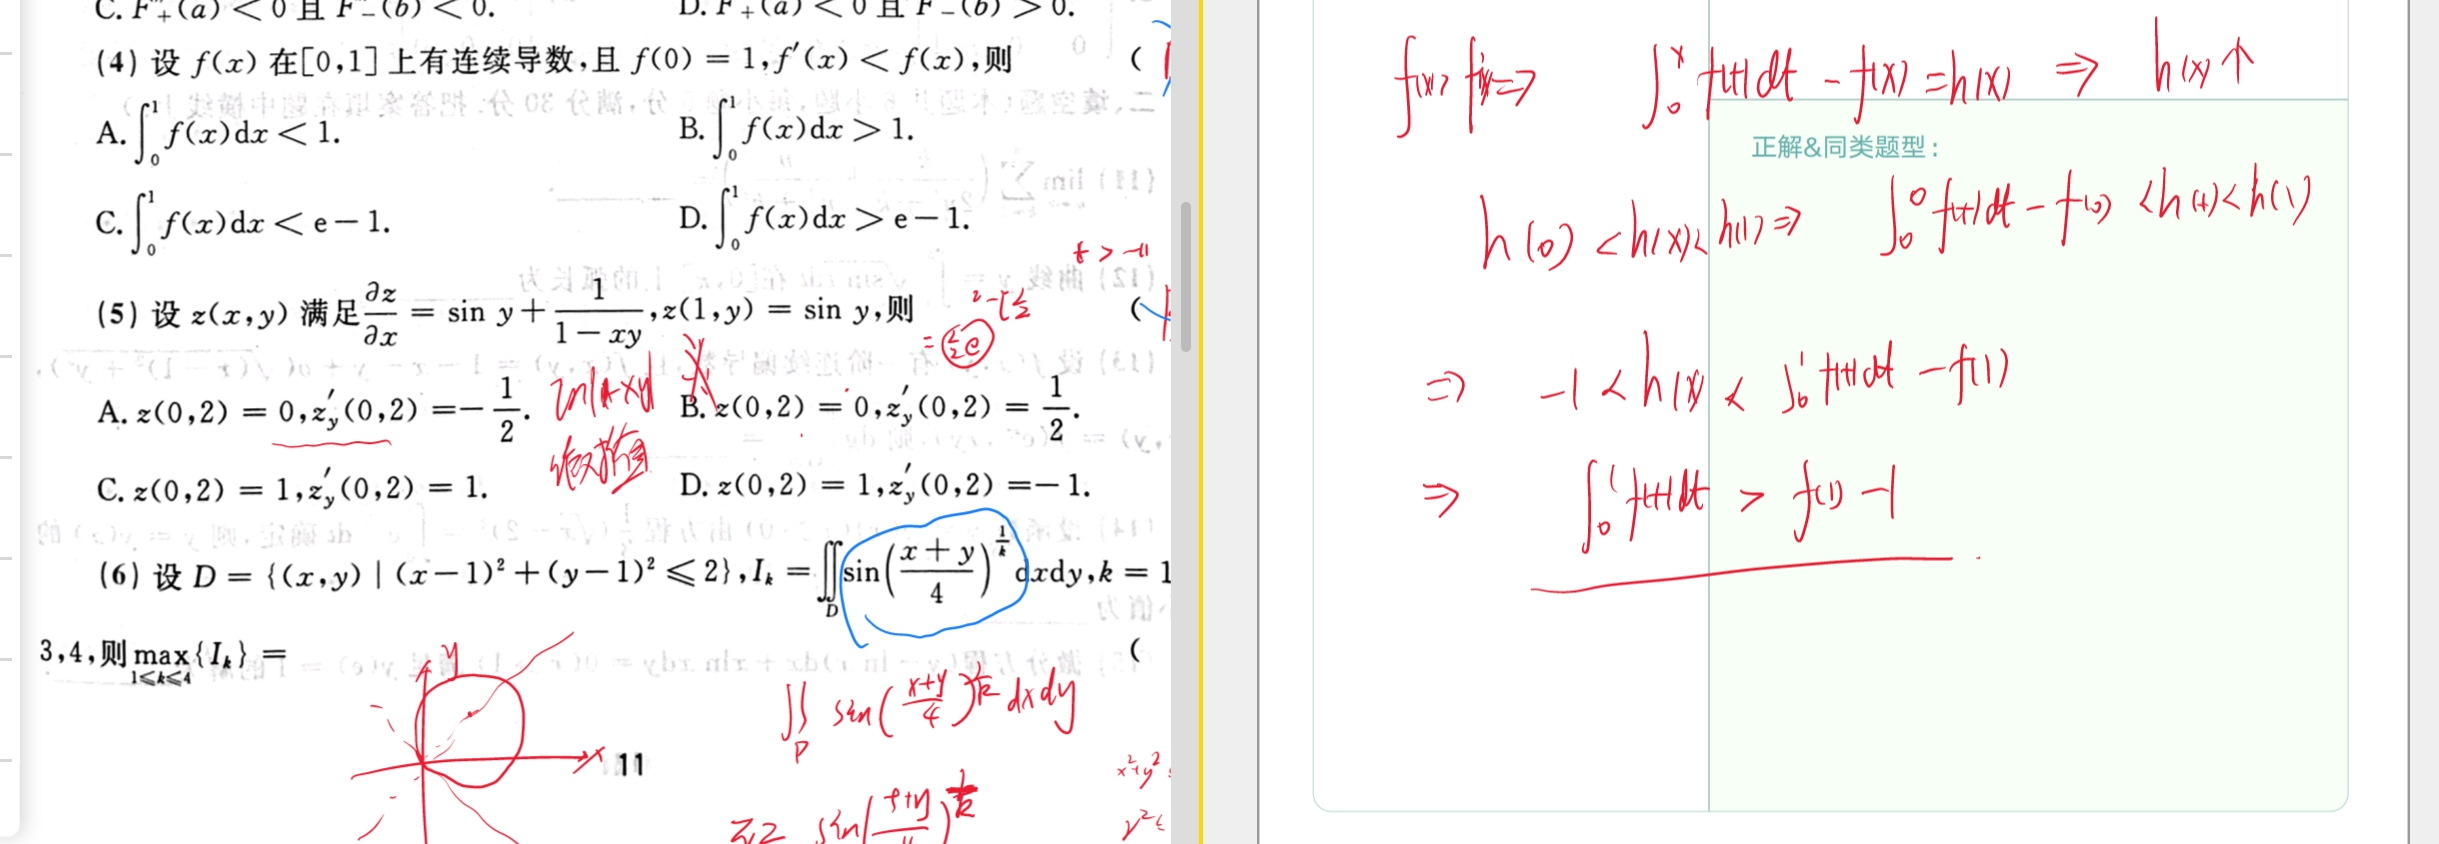 C. F′₊(a) < 0 且 F′₋(b) < 0.
D. F′₊(a) < 0 且 F′₋(b) > 0.
(4) 设 f(x) 在[0,1]上有连续导数,且 f(0) = 1,f′(x) < f(x),则 (
A. ∫₀¹ f(x)dx < 1.
B. ∫₀¹ f(x)dx > 1.
C. ∫₀¹ f(x)dx < e − 1.
D. ∫₀¹ f(x)dx > e − 1.
(5) 设 z(x,y) 满足 ∂z/∂x = sin y + 1/(1 − xy), z(1,y) = sin y,则 (
A. z(0,2) = 0, z′y(0,2) = −1/2.
B. z(0,2) = 0, z′y(0,2) = 1/2.
C. z(0,2) = 1, z′y(0,2) = 1.
D. z(0,2) = 1, z′y(0,2) = −1.
(6) 设 D = {(x,y) | (x−1)² + (y−1)² ⩽ 2}, Iₖ = ∬_D sin((x+y)/4)^(1/k) dxdy, k = 1
3,4,则 max_{1⩽k⩽4}{Iₖ} = (
y
x
∬_D sin((x+y)/4)^(1/k) dxdy
11
f(x)> f′(x) ⇒ ∫₀ˣ f(t)dt − f(x) = h(x) ⇒ h(x)↑
正解&同类题型:
h(0) < h(x) < h(1) ⇒ ∫₀⁰ f(t)dt − f(0) < h(x) < h(1)
⇒ −1 < h(x) < ∫₀¹ f(t)dt − f(1)
⇒ ∫₀¹ f(t)dt > f(1) − 1